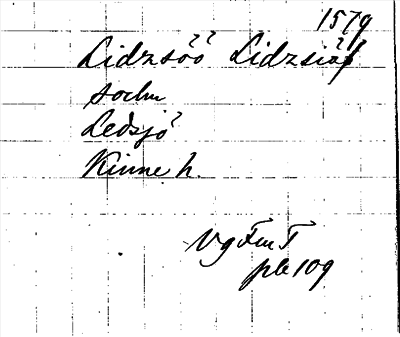 1579
Lidzsöö Lidzsiöö
sochn
Ledsjö
Kinne h.
Vg Fm T
pb 109